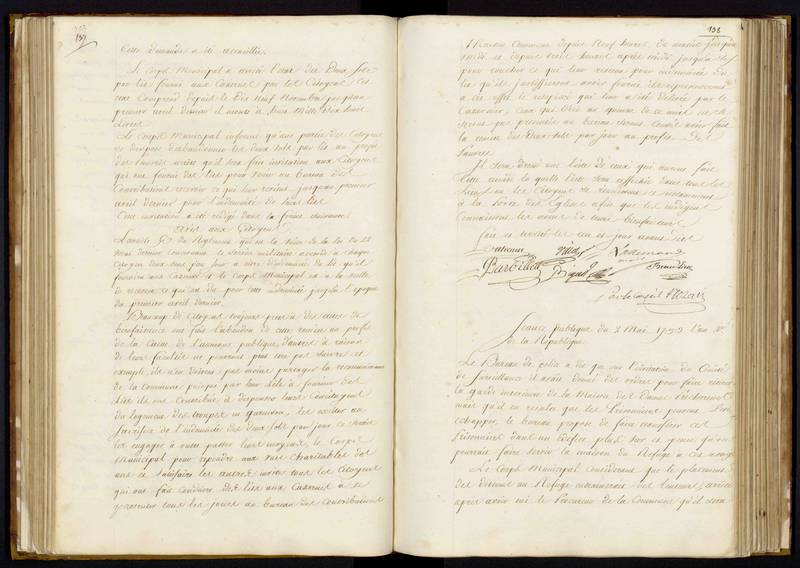 157
Cette demande a été accueillie.
Le Corps Municipal a arrêté l'état des deux sols
par lits fourni aux Casernes par les Citoyens, cet
état comprend depuis le dix neuf Novembre jusqu'au
premier avril dernier il monte à
Livres
Le Corps Municipal informé qu'une partie des Citoyens
se dispose d'abandonner les deux sols par lit au profit
des pauvres arrête qu'il sera fait invitation aux Citoyens
qui ont fourni des lits pour venir au bureau des
Contributions recevoir ce qui leur revient jusqu'au premier
avril dernier pour l'indemnité de leurs lits
Cette invitation a été rédigé dans la forme suivante.
Avis aux Citoyens
L'article du Règlement qui est la suite de la loi du 23
mai dernier concernant le service militaire accorde à chaque
Citoyen deux sous par jour à titre d'indemnité du lit qu'il
fournira aux Casernes et le Corps Municipal est à la veille
de recevoir ce qui est dû pour cette indemnité jusqu'à l'époque
du premier avril dernier.
Beaucoup de Citoyens toujours prêts à des actes de
bienfaisance ont fait l'abandon de cette remise au profit
de la Caisse de l'aumône publique, d'autres à raison
de leurs facultés ne pourront peut être pas suivre cet
exemple, ils n'en doivent pas moins partager la reconnaissance
de la Commune puisque par leur zèle à fournir des
lits ils ont contribué à dispenser leurs Concitoyens
du logement des troupes en garnison, les inviter au
sacrifice de l'indemnité des deux sols par jour ce serait
les engager à outre passer leurs moyens, le Corps
Municipal pour répondre aux vues charitables des
uns et satisfaire les autres invite tous les Citoyens
qui ont fait conduire des lits aux Casernes à se
présenter tous les jours au bureau des Contributions
158
Maison Commune depuis neuf heures du matin jusqu'à
midi et depuis trois heures après midi jusqu'à six
pour toucher ce qui leur revient pour indemnité des
lits qu'ils justifieront avoir fournis en représentant
à cet effet le récépissé qui leur a été délivré par le
Casernier, ceux qui d'ici au quinze de ce mois ne se
seront pas présentés au bureau seront censés avoir fait
la remise des deux sols par jour au profit des
Pauvres.
Il sera dressé une liste de ceux qui auront fait
cette remise laquelle liste sera affichée dans tous les
lieux où les Citoyens se réunissent et notamment
à la porte des Eglises afin que les indigents
connaissent les noms de leurs bienfaiteurs
fait et arrêté les an et jour avant dits
Barbillat
Par le Conseil
Séance publique du 2 Mai 1793 l'an 2e
de la République
Le Bureau de police a dit que sur l'invitation du Comité
de surveillance il avait donné des ordres pour faire
la garde intérieure de la Maison des Dames Prêcheresses
mais qu'il est à craindre que les Prisonniers peuvent s'en
échapper, le bureau propose de faire transférer ces
Prisonniers dans un édifice plus sûr et pense qu'on
pourrait faire servir la maison du Refuge à cet usage
Le Corps Municipal considérant que le placement
des détenus au Refuge entraînerait des lenteurs, arrête
après avoir ouï le Procureur de la Commune qu'il sera